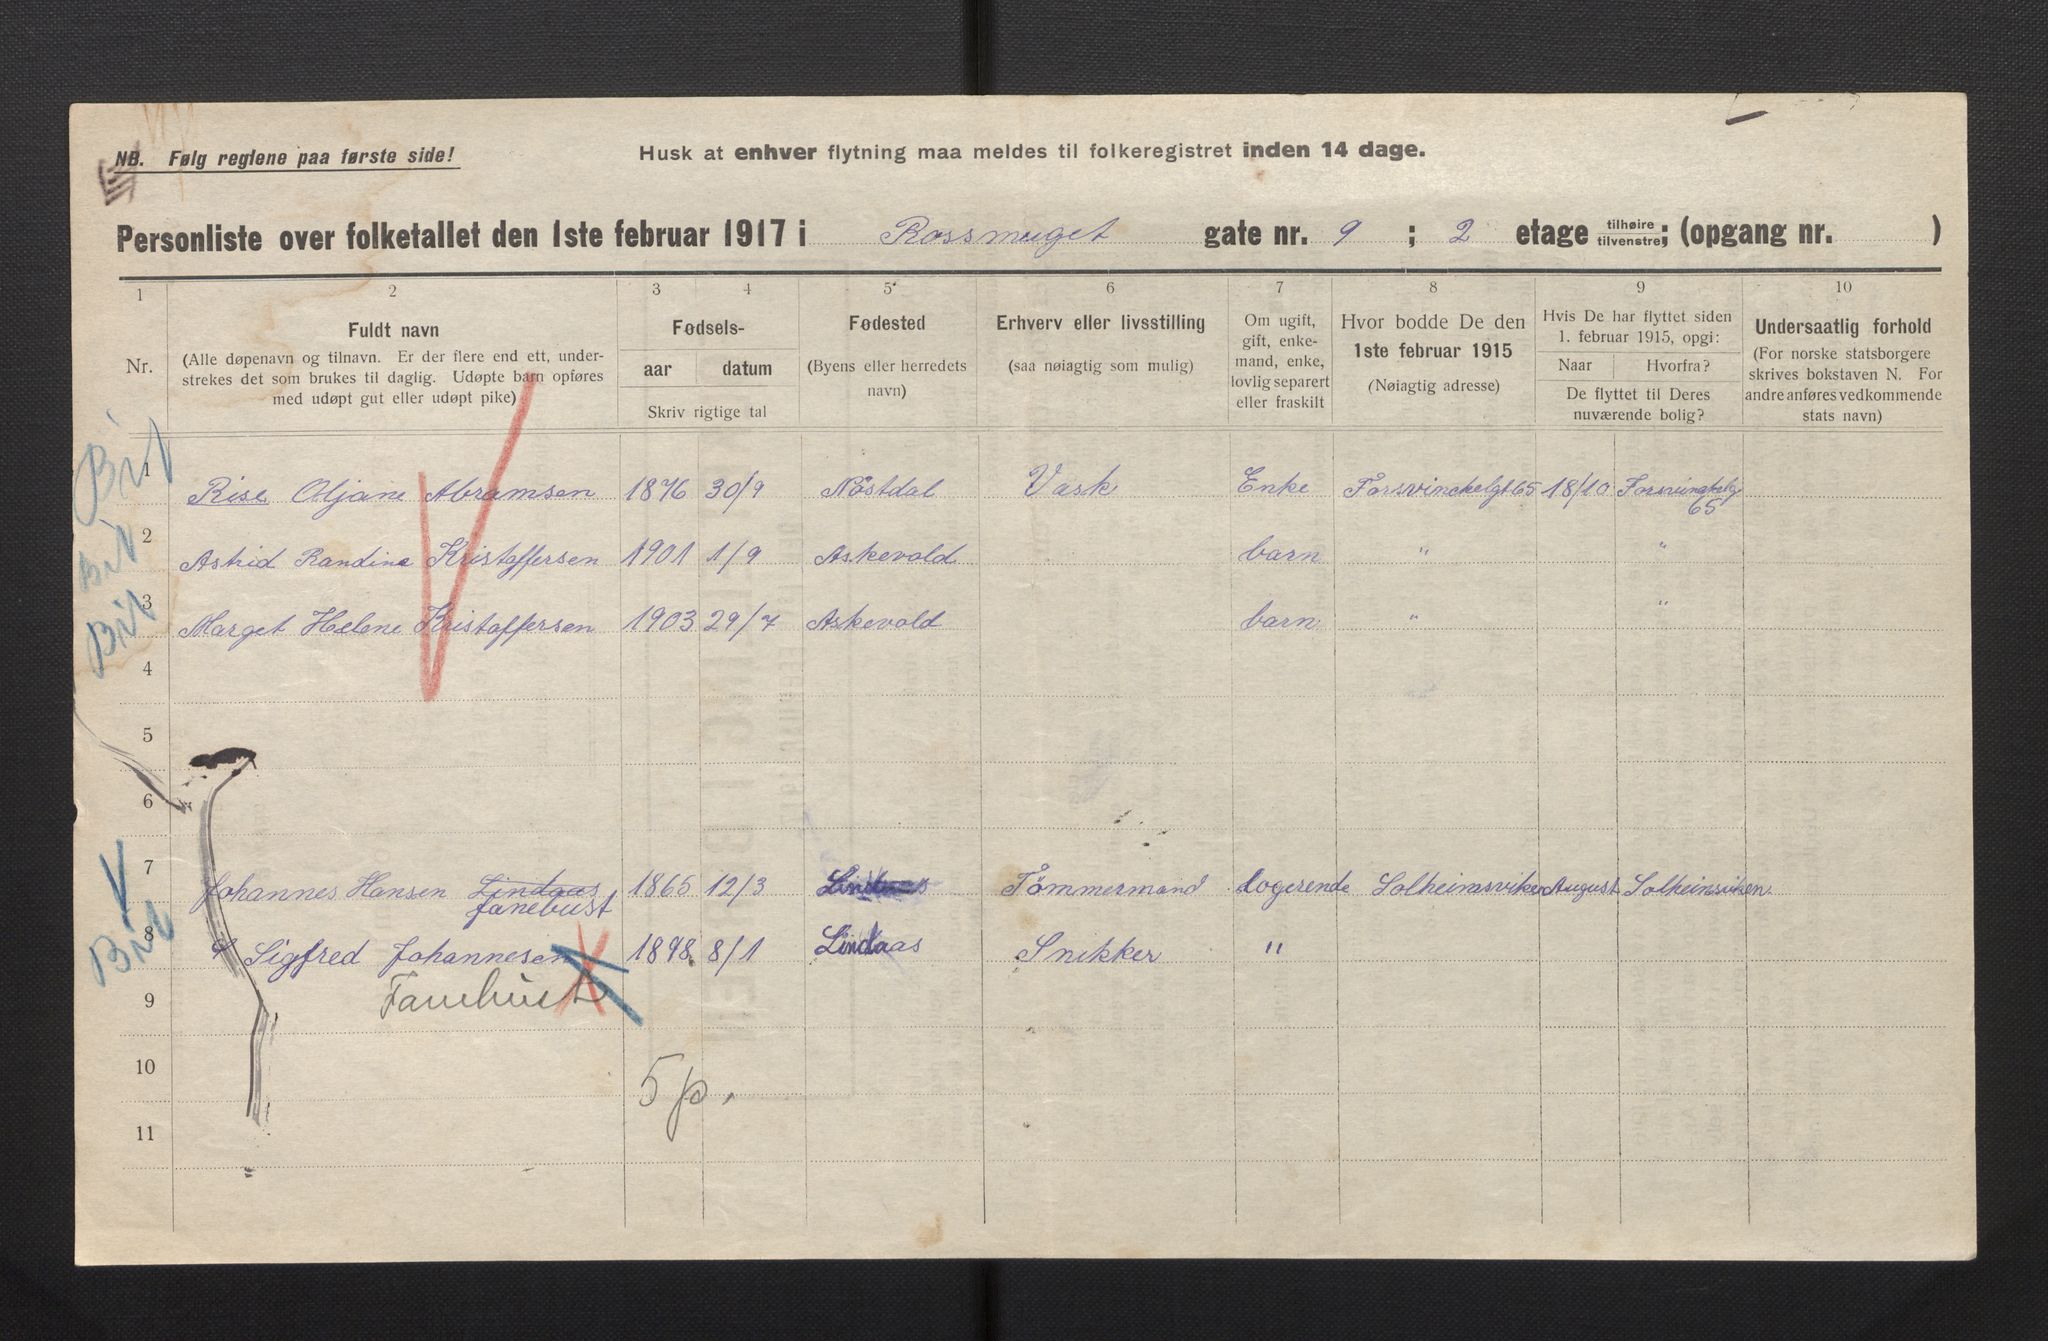 NB. Følg reglene paa første side!
Husk at enhver flytning maa meldes til folkeregistret inden 14 dage.
Personliste over folketallet den 1ste februar 1917 i Rossmuget gate nr. 9 ; 2 etage tilhøire tilvenstre; (opgang nr. )
1 2 3 4 5 6 7 8 9 10
Nr.
Fuldt navn
(Alle døpenavn og tilnavn. Er der flere end ett, under-
strekes det som brukes til daglig. Udøpte barn opføres
med udøpt gut eller udøpt pike)
Fødsels-
aar datum
Skriv rigtige tal
Fødested
(Byens eller herredets
navn)
Erhverv eller livsstilling
(saa nøiagtig som mulig)
Om ugift,
gift, enke-
mand, enke,
lovlig separert
eller fraskilt
Hvor bodde De den
1ste februar 1915
(Nøiagtig adresse)
Hvis De har flyttet siden
1. februar 1915, opgi:
Naar Hvorfra?
De flyttet til Deres
nuværende bolig?
Undersaatlig forhold
(For norske statsborgere
skrives bokstaven N. For
andre anføres vedkommende
stats navn)
1 Rise Oljane Abramsen 1876 30/9 Nöstdal Vask Enke Forsvinckelgt 65 18/10 65
2 Astrid Randine Kristoffersen 1901 1/9 Askevold barn " "
3 Marget Helene Kristoffersen 1903 29/7 Askevold barn " "
4
5
6
7 Johannes Hansen Lindaas 1865 12/3 Lindaas Tömmermand logerende Solheimsviken August Solheimsviken
Fanebust
8 Sigfred Johannesen 1898 8/1 Lindaas Snikker "
9 Fanebust
10 5 p.
11